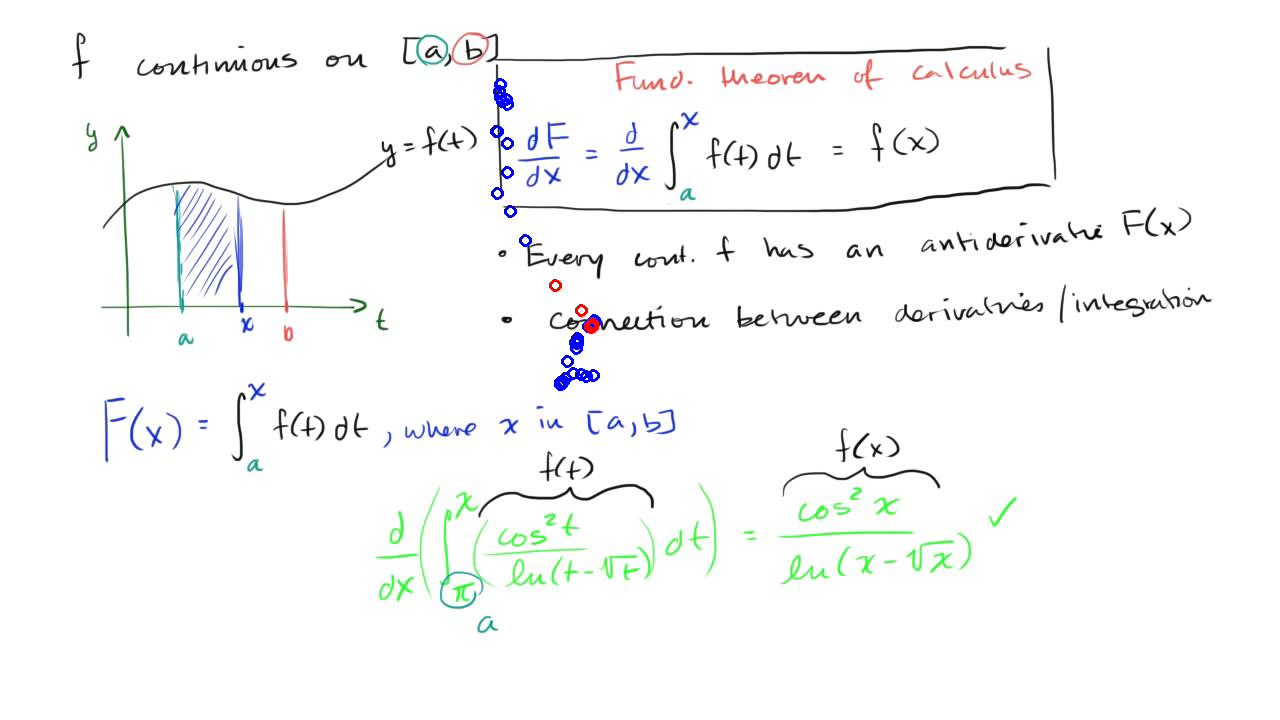 f continuous on [a,b]
Fund. theorem of calculus
dF/dx = d/dx ∫_a^x f(t) dt = f(x)
y
y = f(t)
a x b t
• Every cont. f has an antiderivative F(x)
• Connection between derivatives/integration
F(x) = ∫_a^x f(t) dt, where x in [a,b]
f(t) f(x)
d/dx (∫_π^x (cos²t / ln(t-√t)) dt) = cos²x / ln(x-√x) ✓
a